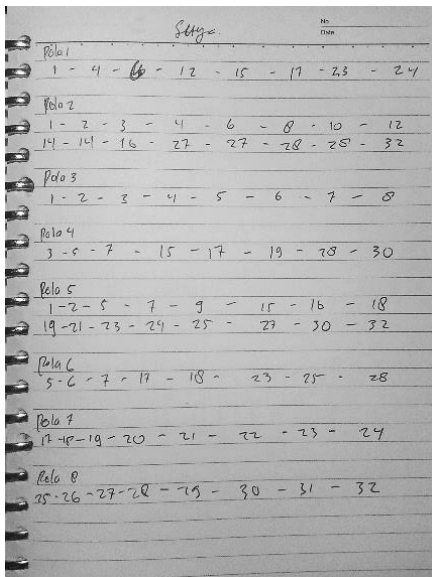 No
Date
Setya
Pola 1
1 - 4 - 6 - 12 - 15 - 17 - 23 - 24
Pola 2
1 - 2 - 3 - 4 - 6 - 8 - 10 - 12
14 - 14 - 16 - 27 - 27 - 28 - 28 - 32
Pola 3
1 - 2 - 3 - 4 - 5 - 6 - 7 - 8
Pola 4
3 - 5 - 7 - 15 - 17 - 19 - 28 - 30
Pola 5
1 - 2 - 5 - 7 - 9 - 15 - 16 - 18
19 - 21 - 23 - 24 - 25 - 27 - 30 - 32
Pola 6
5 - 6 - 7 - 17 - 18 - 23 - 25 - 28
Pola 7
17 - 18 - 19 - 20 - 21 - 22 - 23 - 24
Pola 8
25 - 26 - 27 - 28 - 29 - 30 - 31 - 32